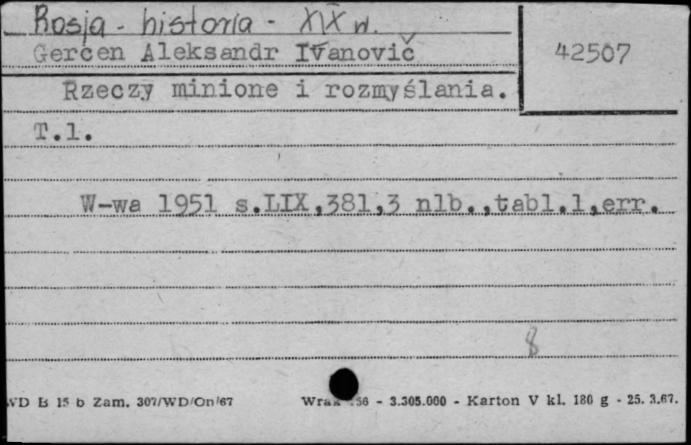 Rosja - historia - XIX w.
Gercen Aleksandr Ivanovič
42507
Rzeczy minione i rozmyślania.
T.1.
W-wa 1951 s.LIX,381,3 nlb.,tabl.1,err.
8
WD B 15 b Zam. 307/WD/On/67 3.305.000 - Karton V kl. 180 g - 25. 3.67.